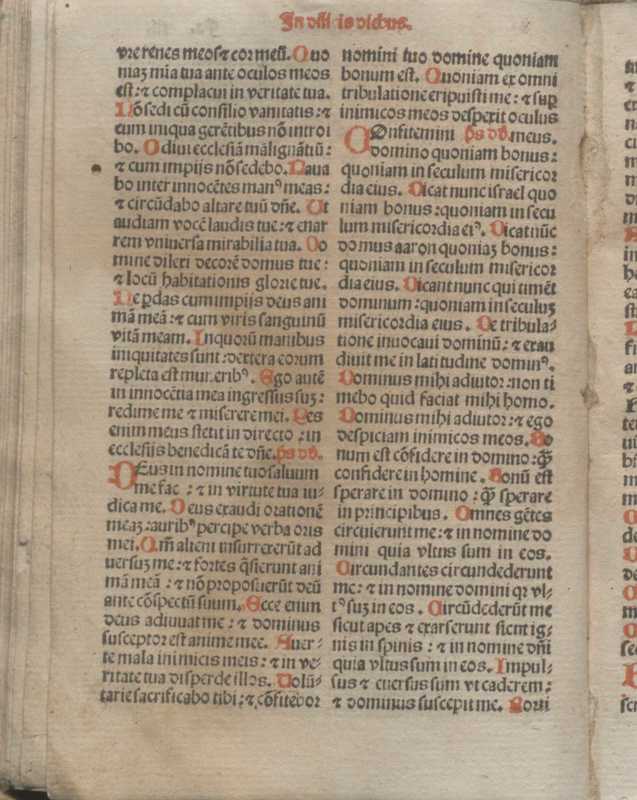 In diebus.
vre renes meos ⁊ cor meū. Quo
niaꝫ mia tua ante oculos meos
est: ⁊ complacui in veritate tua.
Nō sedi cū consilio vanitatis: ⁊
cum iniqua gerētibus nō introi
bo. Odiui ecclesiā malignātiū:
⁊ cum impijs nō sedebo. Laua
bo inter innocētes manꝰ meas:
⁊ circūdabo altare tuū dn̄e. Ut
audiam vocē laudis tue: ⁊ enar
rem vniuersa mirabilia tua. Do
mine dilexi decorē domus tue:
⁊ locū habitationis glorie tue.
Ne perdas cum impijs deus ani
mā meā: ⁊ cum viris sanguinū
vitā meam. In quorū manibus
iniquitates sunt: dextera eorum
repleta est muneribꝰ. Ego autē
in innocētia mea ingressus suꝫ:
redime me ⁊ miserere mei. Pes
enim meus stetit in directo: in
ecclesijs benedicā te dn̄e. p̄s dd.
DEus in nomine tuo saluum
me fac: ⁊ in virtute tua iu-
dica me. Deus exaudi orationē
meaꝫ: auribꝰ percipe verba oris
mei. Qm̄ alieni insurrexerūt ad
uersuꝫ me: ⁊ fortes q̄sierunt ani
mā meā: ⁊ nō proposuerūt deū
ante cōspectū suum. Ecce enim
deus adiuuat me: ⁊ dominus
susceptor est anime mee. Auer-
te mala inimicis meis: ⁊ in ve-
ritate tua disperde illos. Volū-
tarie sacrificabo tibi: ⁊ cōfitebor
nomini tuo domine quoniam
bonum est. Quoniam ex omni
tribulatione eripuisti me: ⁊ suꝑ
inimicos meos despexit oculus
COnfitemini p̄s dd. meus.
domino quoniam bonus:
quoniam in seculum misericor
dia eius. Dicat nunc israel quo
niam bonus: quoniam in secu
lum misericordia eiꝰ. Dicat nūc
domus aaron quoniaꝫ bonus:
quoniam in seculum misericor
dia eius. Dicant nunc qui timēt
dominum: quoniam in seculuꝫ
misericordia eius. De tribula-
tione inuocaui dominū: ⁊ exau
diuit me in latitudine dominꝰ.
Dominus mihi adiutor: non ti
mebo quid faciat mihi homo.
Dominus mihi adiutor: ⁊ ego
despiciam inimicos meos. Bo
num est cōfidere in domino: q̄ꝫ
confidere in homine. Bonū est
sperare in domino: q̄ꝫ sperare
in principibus. Omnes gētes
circuierunt me: ⁊ in nomine do
mini quia vltus sum in eos.
Circundantes circundederunt
me: ⁊ in nomine domini qr vl-
tꝰ suꝫ in eos. Circūdederūt me
sicut apes ⁊ exarserunt sicut ig-
nis in spinis: ⁊ in nomine dn̄i
quia vltus sum in eos. Impul-
sus ⁊ euersus sum vt caderem:
⁊ dominus suscepit me. Forti